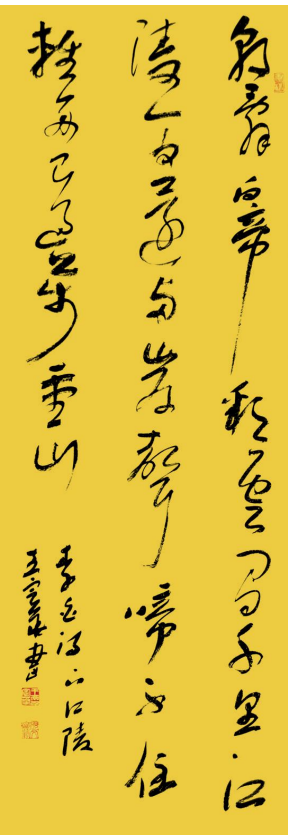 朝辭白帝彩雲間千里江
陵一日還兩岸聲啼不住
輕舟已過萬重山
李白詩下江陵
王 書